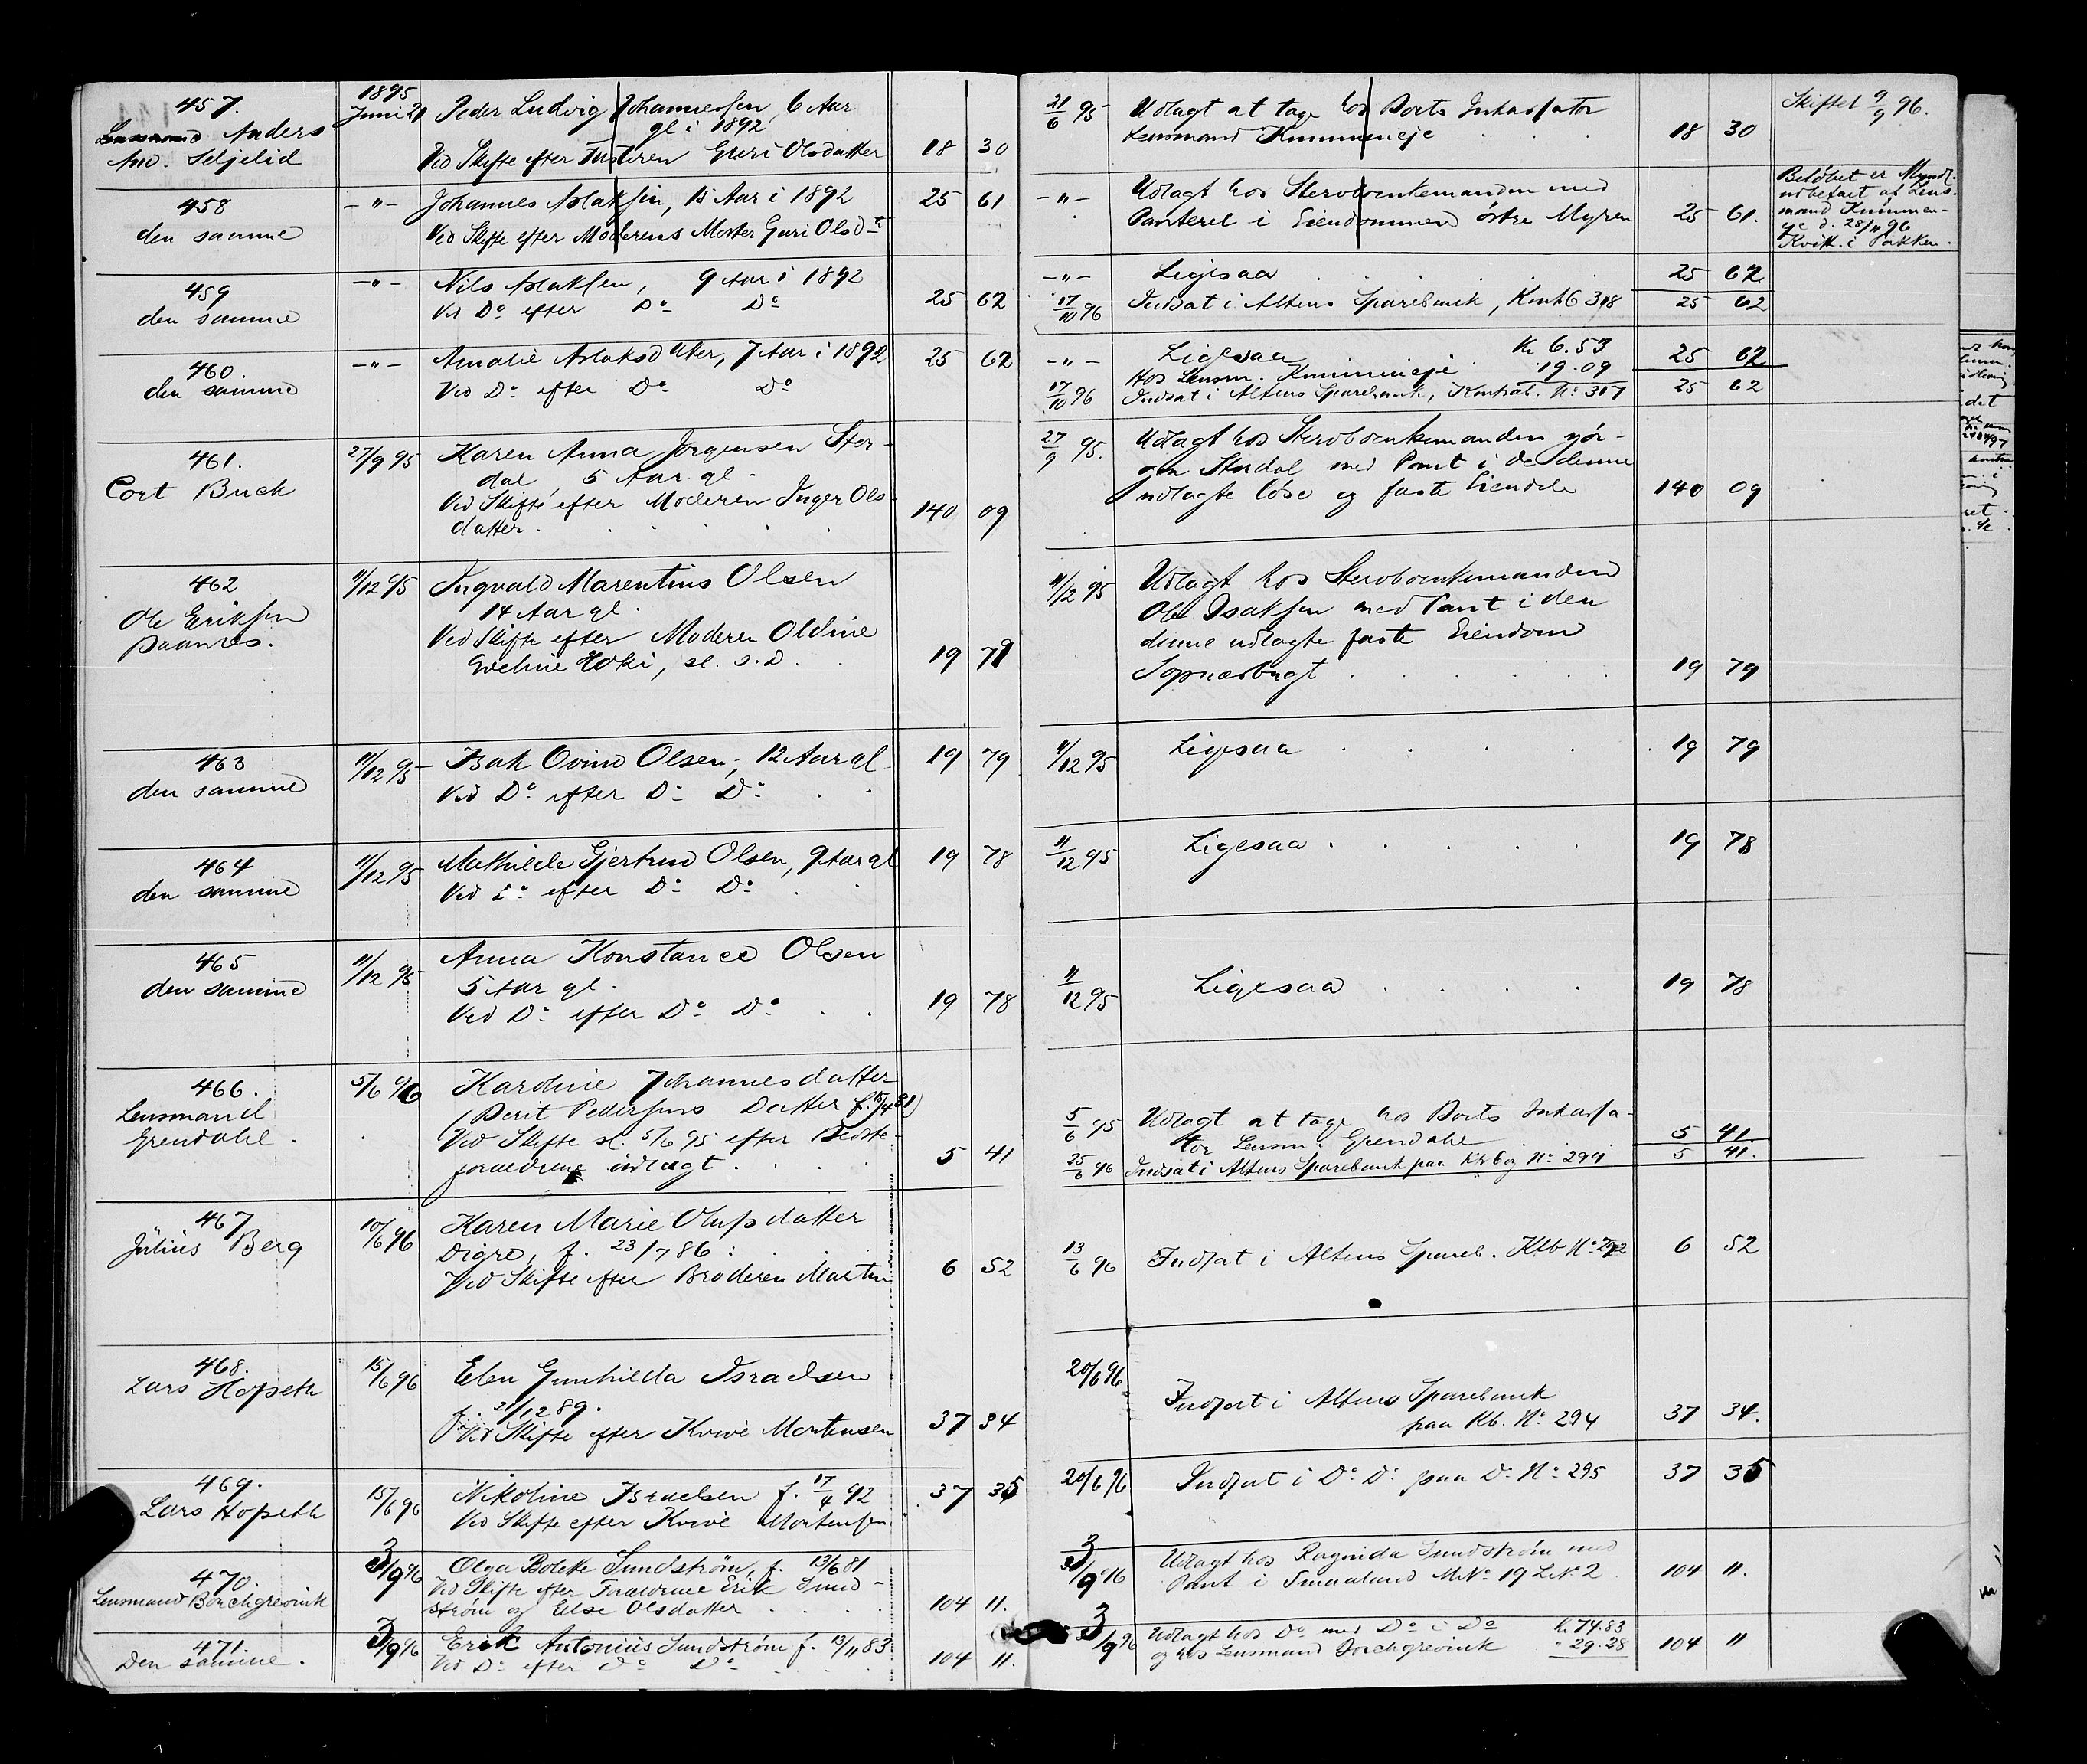 457.
Lensmand Anders
And. Seljelid
1895
Juni 21
Peder Ludvig Johannessen, 6 Aar
gl. i 1892
Ved Skifte efter Tusteren Guri Olsdatter
18 30
21/6 95
Udlagt at tage hos Boets Inkassator
Lensmand Kummeneje
18 30
Skiftet 9/9 96.
458
den samme
-"-
Johannes Aslaksen, 15 Aar i 1892
Ved Skifte efter Moderens Moster Guri Olsdtr
25 61
-"-
Udlagt hos Stervboenkemanden med
Panteret i Eiendommen östre Myren
25 61.
Belöbet er Myndl.
udbetalt af Lens-
mand Kummen-
eje d. 28/11 96
Kvitt. i Pakken.
459
den samme
-"-
Nils Aslaksen, 9 Aar i 1892
Ved Do efter Do Do
25 62
-"-
Ligesaa
25 62
17/10 96
Indsat i Altens Sparebank, Kontb 318
25 62
460.
den samme
-"-
Amalie Aslaksdatter, 7 Aar i 1892
Ved Do efter Do Do
25 62
-"-
Ligesaa Kr 6.53
Hos Lensm. Kummeneje 19.09
25 62
17/10 96
Indsat i Altens Sparebank, Kontrab. No 317
25 62
461.
Cort Buck
27/9 95
Karen Anna Jørgensen Stor-
dal 5 Aar gl.
Ved Skifte efter Moderen Inger Ols-
datter.
140 09
27/9 95.
Udlagt hos Stervboenkemanden Jör-
gen Stordal med Pant i de denne
udlagte löse og faste Eiendele
140 09
462
Ole Eriksen
Saanees.
11/12 95
Ingvald Marentius Olsen
14 Aar gl.
Ved Skifte efter Moderen Oldine
Eveline Hoki, sl. s.D.
19 79
11/12 95
Udlagt hos Stervboenkemanden
Ole Isaksen med Pant i den
denne udlagte faste Eiendom
Sopnæsbugt
19 79
463
den samme
11/12 95
Isak Ovind Olsen, 12 Aar gl
Ved Do efter Do Do
19 79
11/12 95
Ligesaa
19 79
464
den samme
11/12 95
Mathilde Gjertrud Olsen, 9 Aar gl
Ved Do efter Do Do
19 78
11/12 95
Ligesaa
19 78
465
den samme
11/12 95
Anna Konstance Olsen
5 Aar gl.
Ved Do efter Do Do
19 78
11/12 95
Ligesaa
19 78
466.
Lensmand
Grendahl.
5/6 96
Karoline Johannesdatter
(Berit Pedersens Datter f. 15/4 81)
Ved Skifte sl. 5/6 95 efter Bedste-
forældrene indlagt
5 41
5/6 95
Udlagt at tage hos Boets Inkassa-
tor Lensm. Grendahl
5 41.
25/6 96
Indsat i Altens Sparebank paa Ktrbog No 299
5 41.
467
Julius Berg
10/6 96
Karen Marie Olufsdatter
Digre, f. 23/7 86
Ved Skifte efter Broderen Martin
6 52
13/6 96
Indsat i Altens Spareb. Ktb No 292
6 52
468.
Lars Hopseth
15/6 96
Elen Gunhilda Israelsen
f. 21/12 89.
Ved Skifte efter Kvive Mortensen
37 34
20/6 96
Indsat i Altens Sparebank
paa Kb. No 294
37 34.
469.
Lars Hopseth
15/6 96
Nikoline Israelsen f. 17/4 92
Ved Skifte efter Kvive Mortensen
37 35
20/6 96
Indsat i Do Do paa Do No 295
37 35
470.
Lensmand Borchgrevink
3/9 96
Olga Bolette Sundström, f. 13/6 81
Ved Skifte efter Forældrene Erik Sund-
ström og Else Olsdatter
104 11.
3/9 96
Udlagt hos Ragnida Sundström med
Pant i Smaaland MNo 19 LNo 2
104 11.
471.
Den samme.
3/9 96
Erik Antonius Sundström f. 13/11 83
Ved Do efter Do Do
104 11.
3/9 96
Udlagt hos Do med Do i Do Kr. 74.83
og hos Lensmand Borchgrevink " 29.28
104 11